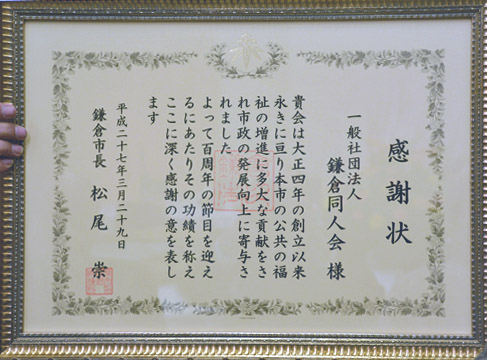 感謝状
一般社団法人
鎌倉同人会 様
貴会は大正四年の創立以来
永きに亘り本市の公共の福
祉の増進に多大な貢献をさ
れ市政の発展向上に寄与さ
れました
よって百周年の節目を迎え
るにあたりその功績を称え
ここに深く感謝の意を表し
ます
平成二十七年三月二十九日
鎌倉市長 松尾 崇